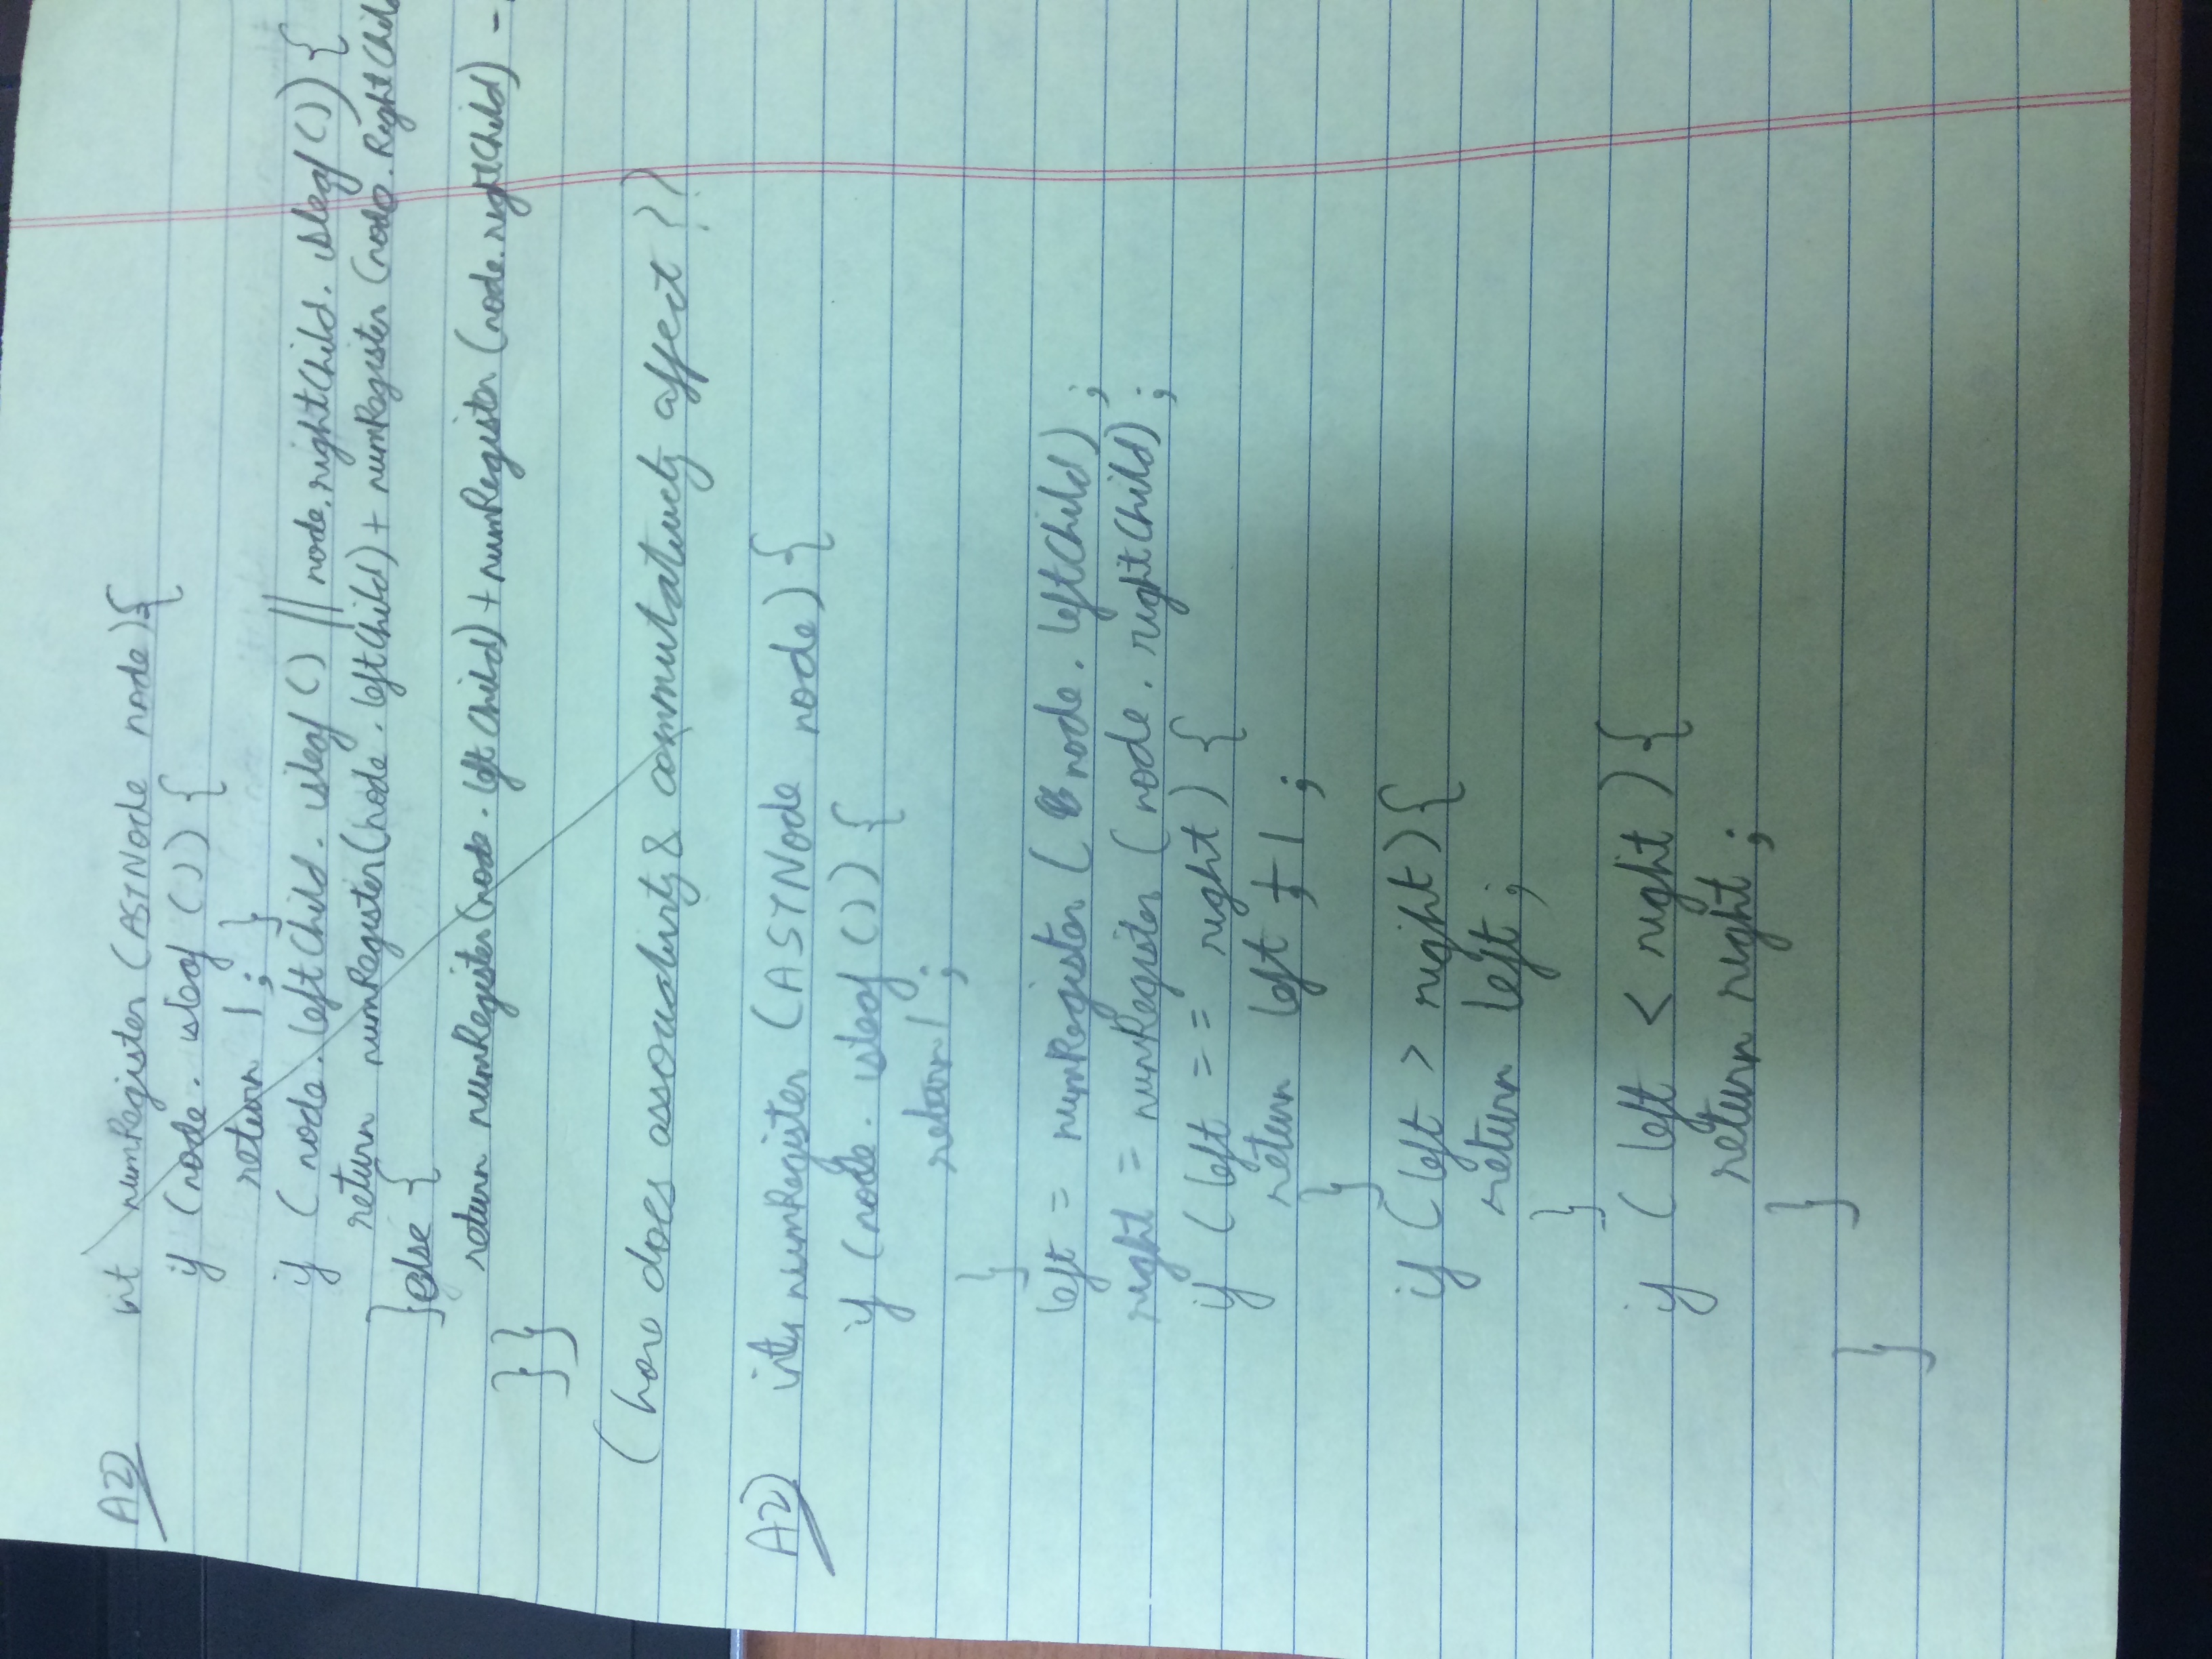 A2) int numRegister (ASTNode node){
if (node. isleaf ()) {
return 1 ; }
if ( node. leftChild. isleaf () || node.rightChild. isleaf ()) {
return numRegister(node . leftChild) + numRegister (node. RightChild
}else {
return numRegister(node. left Child) + numRegister (node.rightChild) -
}}
(how does associativity & commutativity affect ??
A2) int numRegister (ASTNode node) {
if (node. isleaf ()) {
return 1 ;
}
left = numRegister ( node. leftChild) ;
right = numRegister (node. rightChild) ;
if ( left == right ) {
return left + 1 ;
}
if ( left > right ) {
return left ;
}
if ( left < right ) {
return right ;
}
}